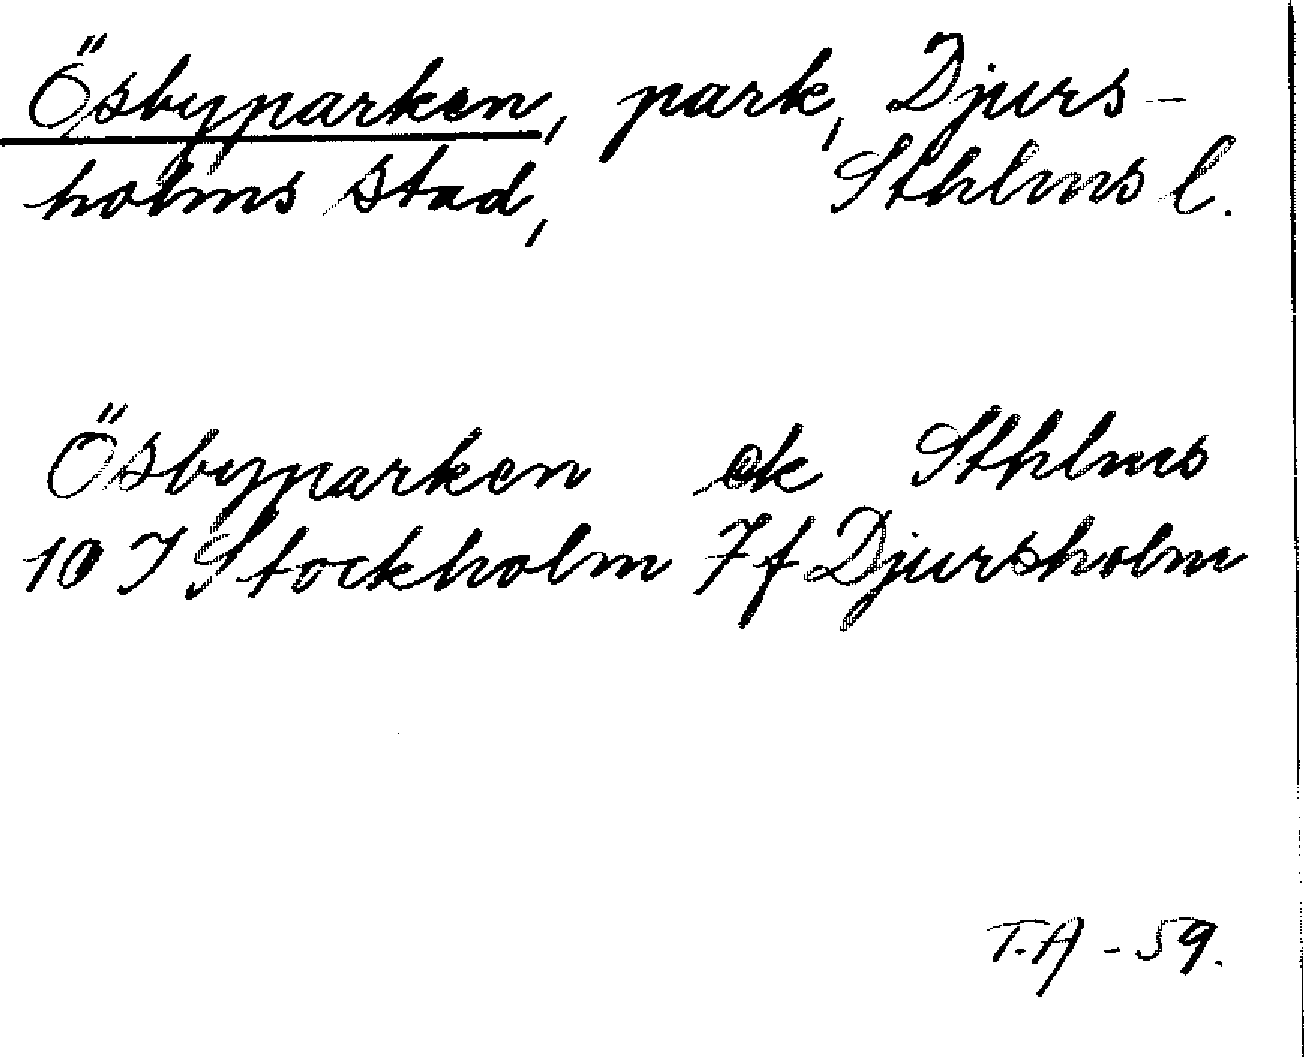 Ösbyparken, park, Djurs-
holms stad, Sthlms l.
Ösbyparken ek Sthlms
10 I Stockholm 7f Djursholm
T.A - 59.